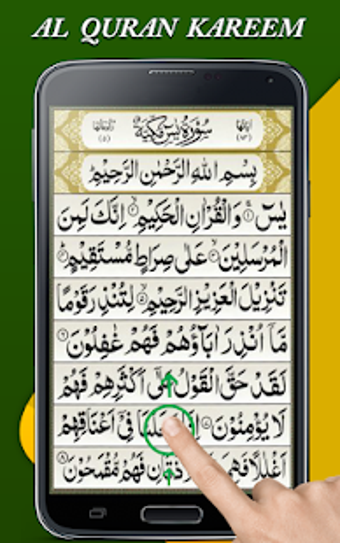 AL QURAN KAREEM
سُوْرَةُ يٰسٓ مَكِّيَّةٌ
بِسْمِ اللهِ الرَّحْمٰنِ الرَّحِيْمِ
يٰسٓ ۚ۱ وَالْقُرْاٰنِ الْحَكِيْمِ ۙ۲ اِنَّكَ لَمِنَ
الْمُرْسَلِيْنَ ۙ۳ عَلٰى صِرَاطٍ مُّسْتَقِيْمٍ ؕ۴
تَنْزِيْلَ الْعَزِيْزِ الرَّحِيْمِ ۙ۵ لِتُنْذِرَ قَوْمًا
مَّاۤ اُنْذِرَ اٰبَآؤُهُمْ فَهُمْ غٰفِلُوْنَ ۶
لَقَدْ حَقَّ الْقَوْلُ عَلٰۤى اَكْثَرِهِمْ فَهُمْ
لَا يُؤْمِنُوْنَ ۷ اِنَّا جَعَلْنَا فِيْۤ اَعْنَاقِهِمْ
اَغْلٰلًا فَهِيَ اِلَى الْاَذْقَانِ فَهُمْ مُّقْمَحُوْنَ ۸